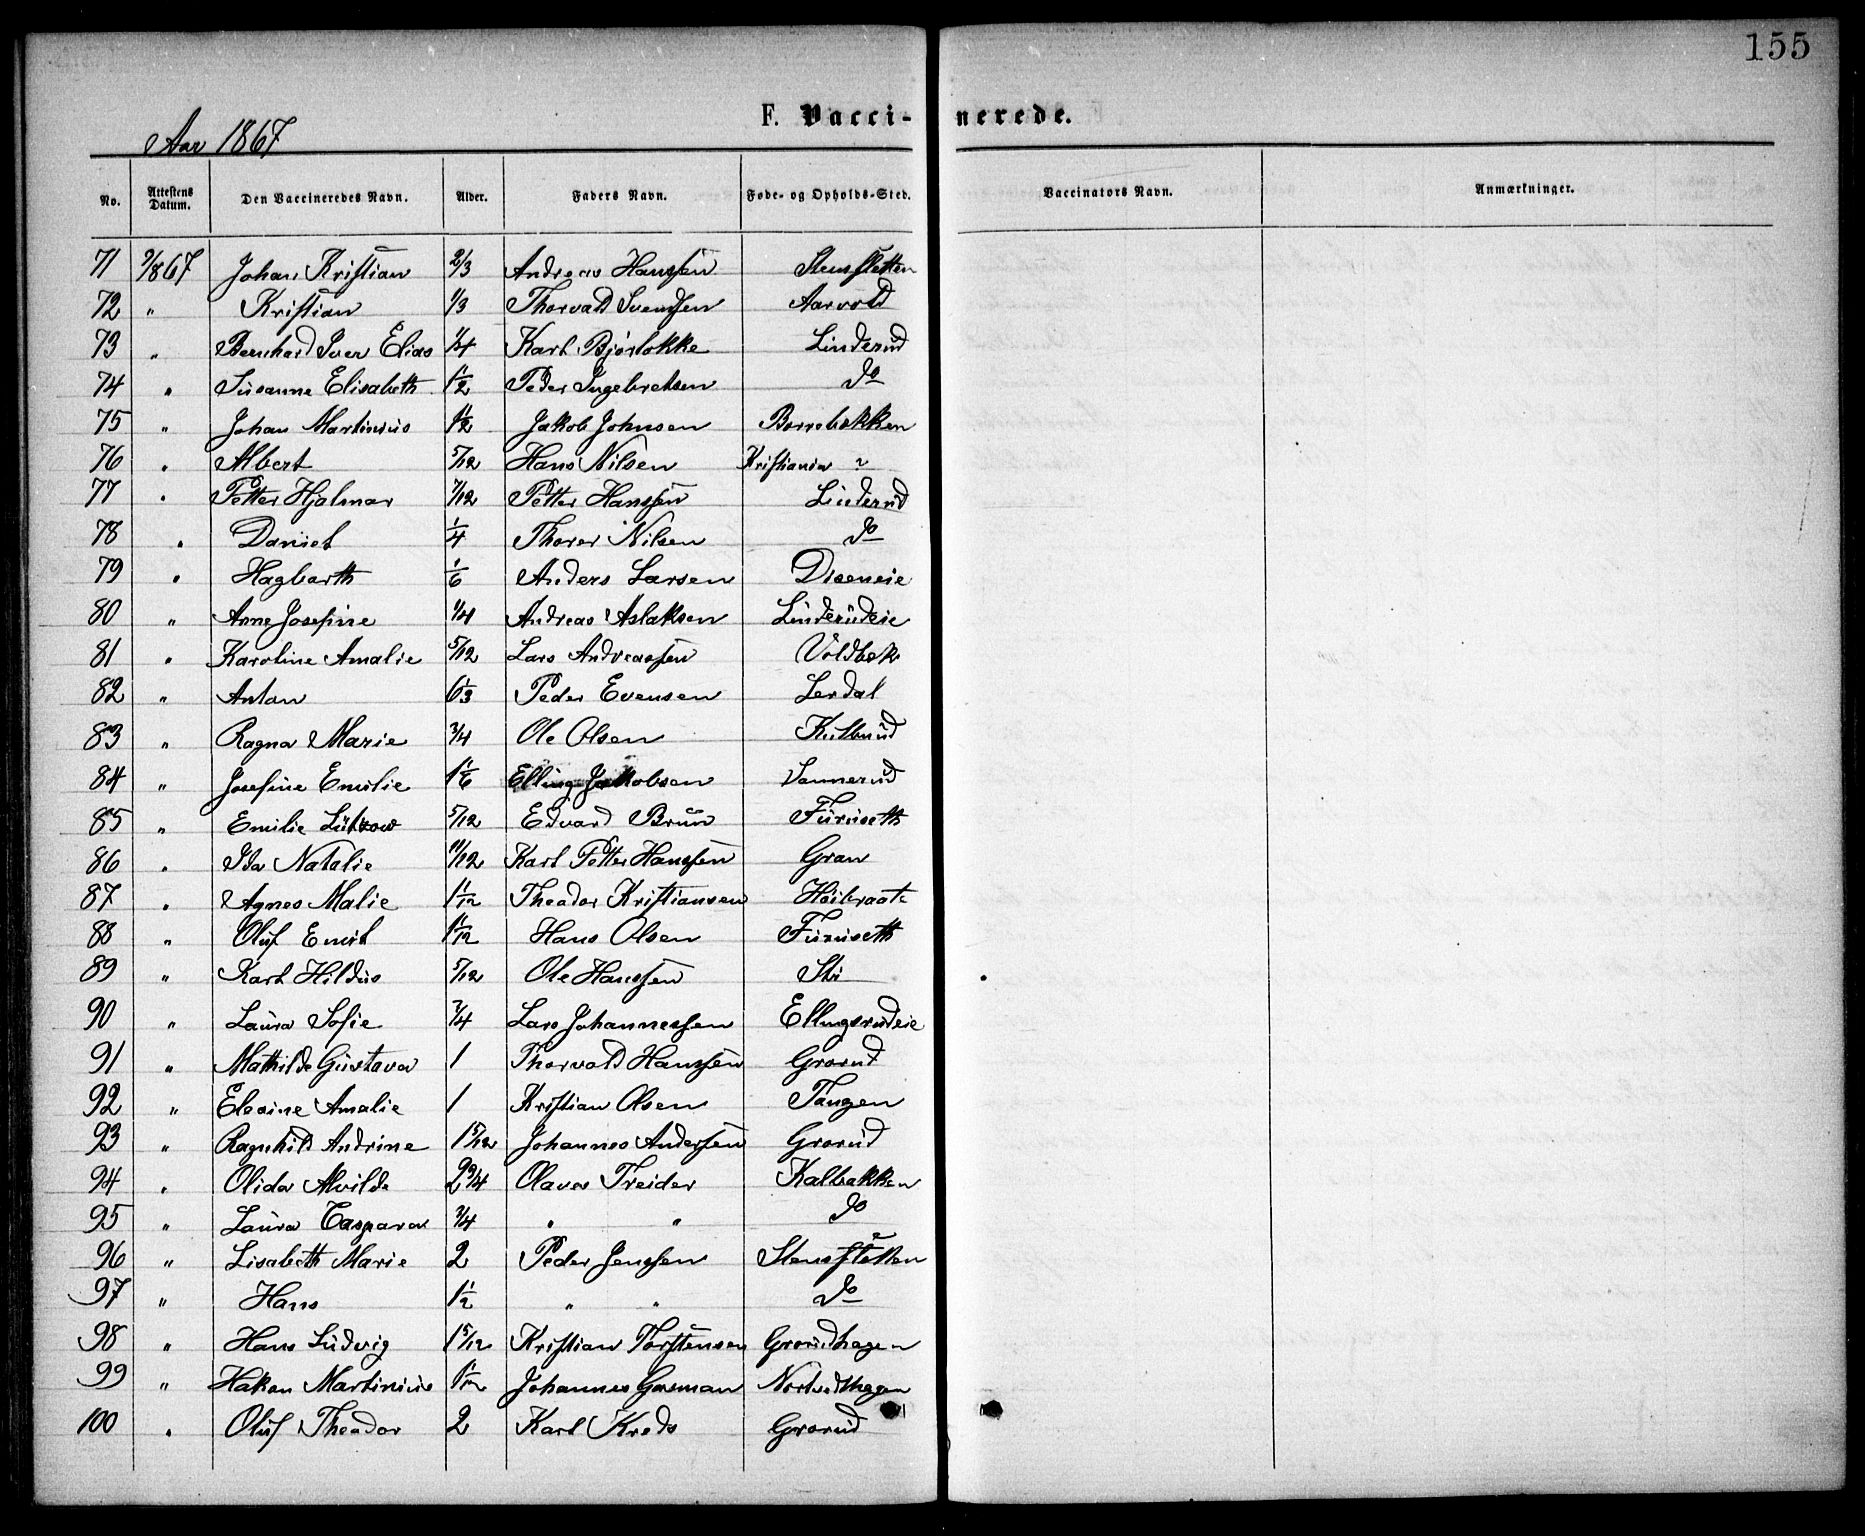 155
F. Vaccinerede.
Aar 1867
No. Attestens Datum. Den Vaccineredes Navn. Alder. Faders Navn. Føde- og Opholds-Sted. Vaccinators Navn. Anmærkninger.
71 9/867 Johan Kristian 2/3 Andreas Hanssen Stensletten
72 " Kristian 1/3 Thorvald Svendsen Aarvold
73 " Bernhard Iver Elias 1/4 Karl Bjørløkke Linderud
74 " Susanne Elisabeth 1 1/2 Peder Ingebretsen do
75 " Johan Martinius 1 1/2 Jakob Johnsen Borrebækken
76 " Albert 5/12 Hans Nilsen Kristiania
77 " Petter Hjalmar 7/12 Petter Hanssen Linderud
78 " Daniel 1/4 Thorer Nilsen do
79 " Hagbarth 1/6 Anders Larsen Diseneie
80 " Anne Josefine 1/4 Andreas Aslaksen Linderudeie
81 " Karoline Amalie 5/12 Lars Andreassen Voldbæk
82 " Anton 6 1/3 Peder Evensen Lerdal
83 " Ragna Marie 3/4 Ole Olsen
84 " Josefine Emilie 1 1/6 Elling Jakobsen Vannerud
85 " Emilie Lützow 5/12 Edvard Brun Furuseth
86 " Ida Natalie 11/12 Karl Petter Hanssen Gran
87 " Agnes Malie 1 1/12 Theodor Kristiansen Høibraate
88 " Oluf Emil 1 1/12 Hans Olsen Furuseth
89 " Karl Hildus 5/12 Ole Hanssen
90 " Laura Sofie 3/4 Lars Johannessen Ellingsrudeie
91 " Mathilde Gustava 1 Thorvald Hanssen Grorud
92 " Elesine Amalie 1 Kristian Olsen Tangen
93 " Ragnhild Andrine 1 5/12 Johannes Andersen Grorud
94 " Olida Alvilde 2 3/4 Olaves Treider Kalbakken
95 " Laura Caspara 3/4 " " do
96 " Lisabeth Marie 2 Peder Jenssen Stensletten
97 " Hans 1 1/2 " " do
98 " Hans Ludvig 1 5/12 Kristian Torstensen Grorudhagen
99 " Hakon Martinius 1 1/12 Johannes Gasman Nortvedthagen
100 " Oluf Theodor 2 Karl Kreds Grorud